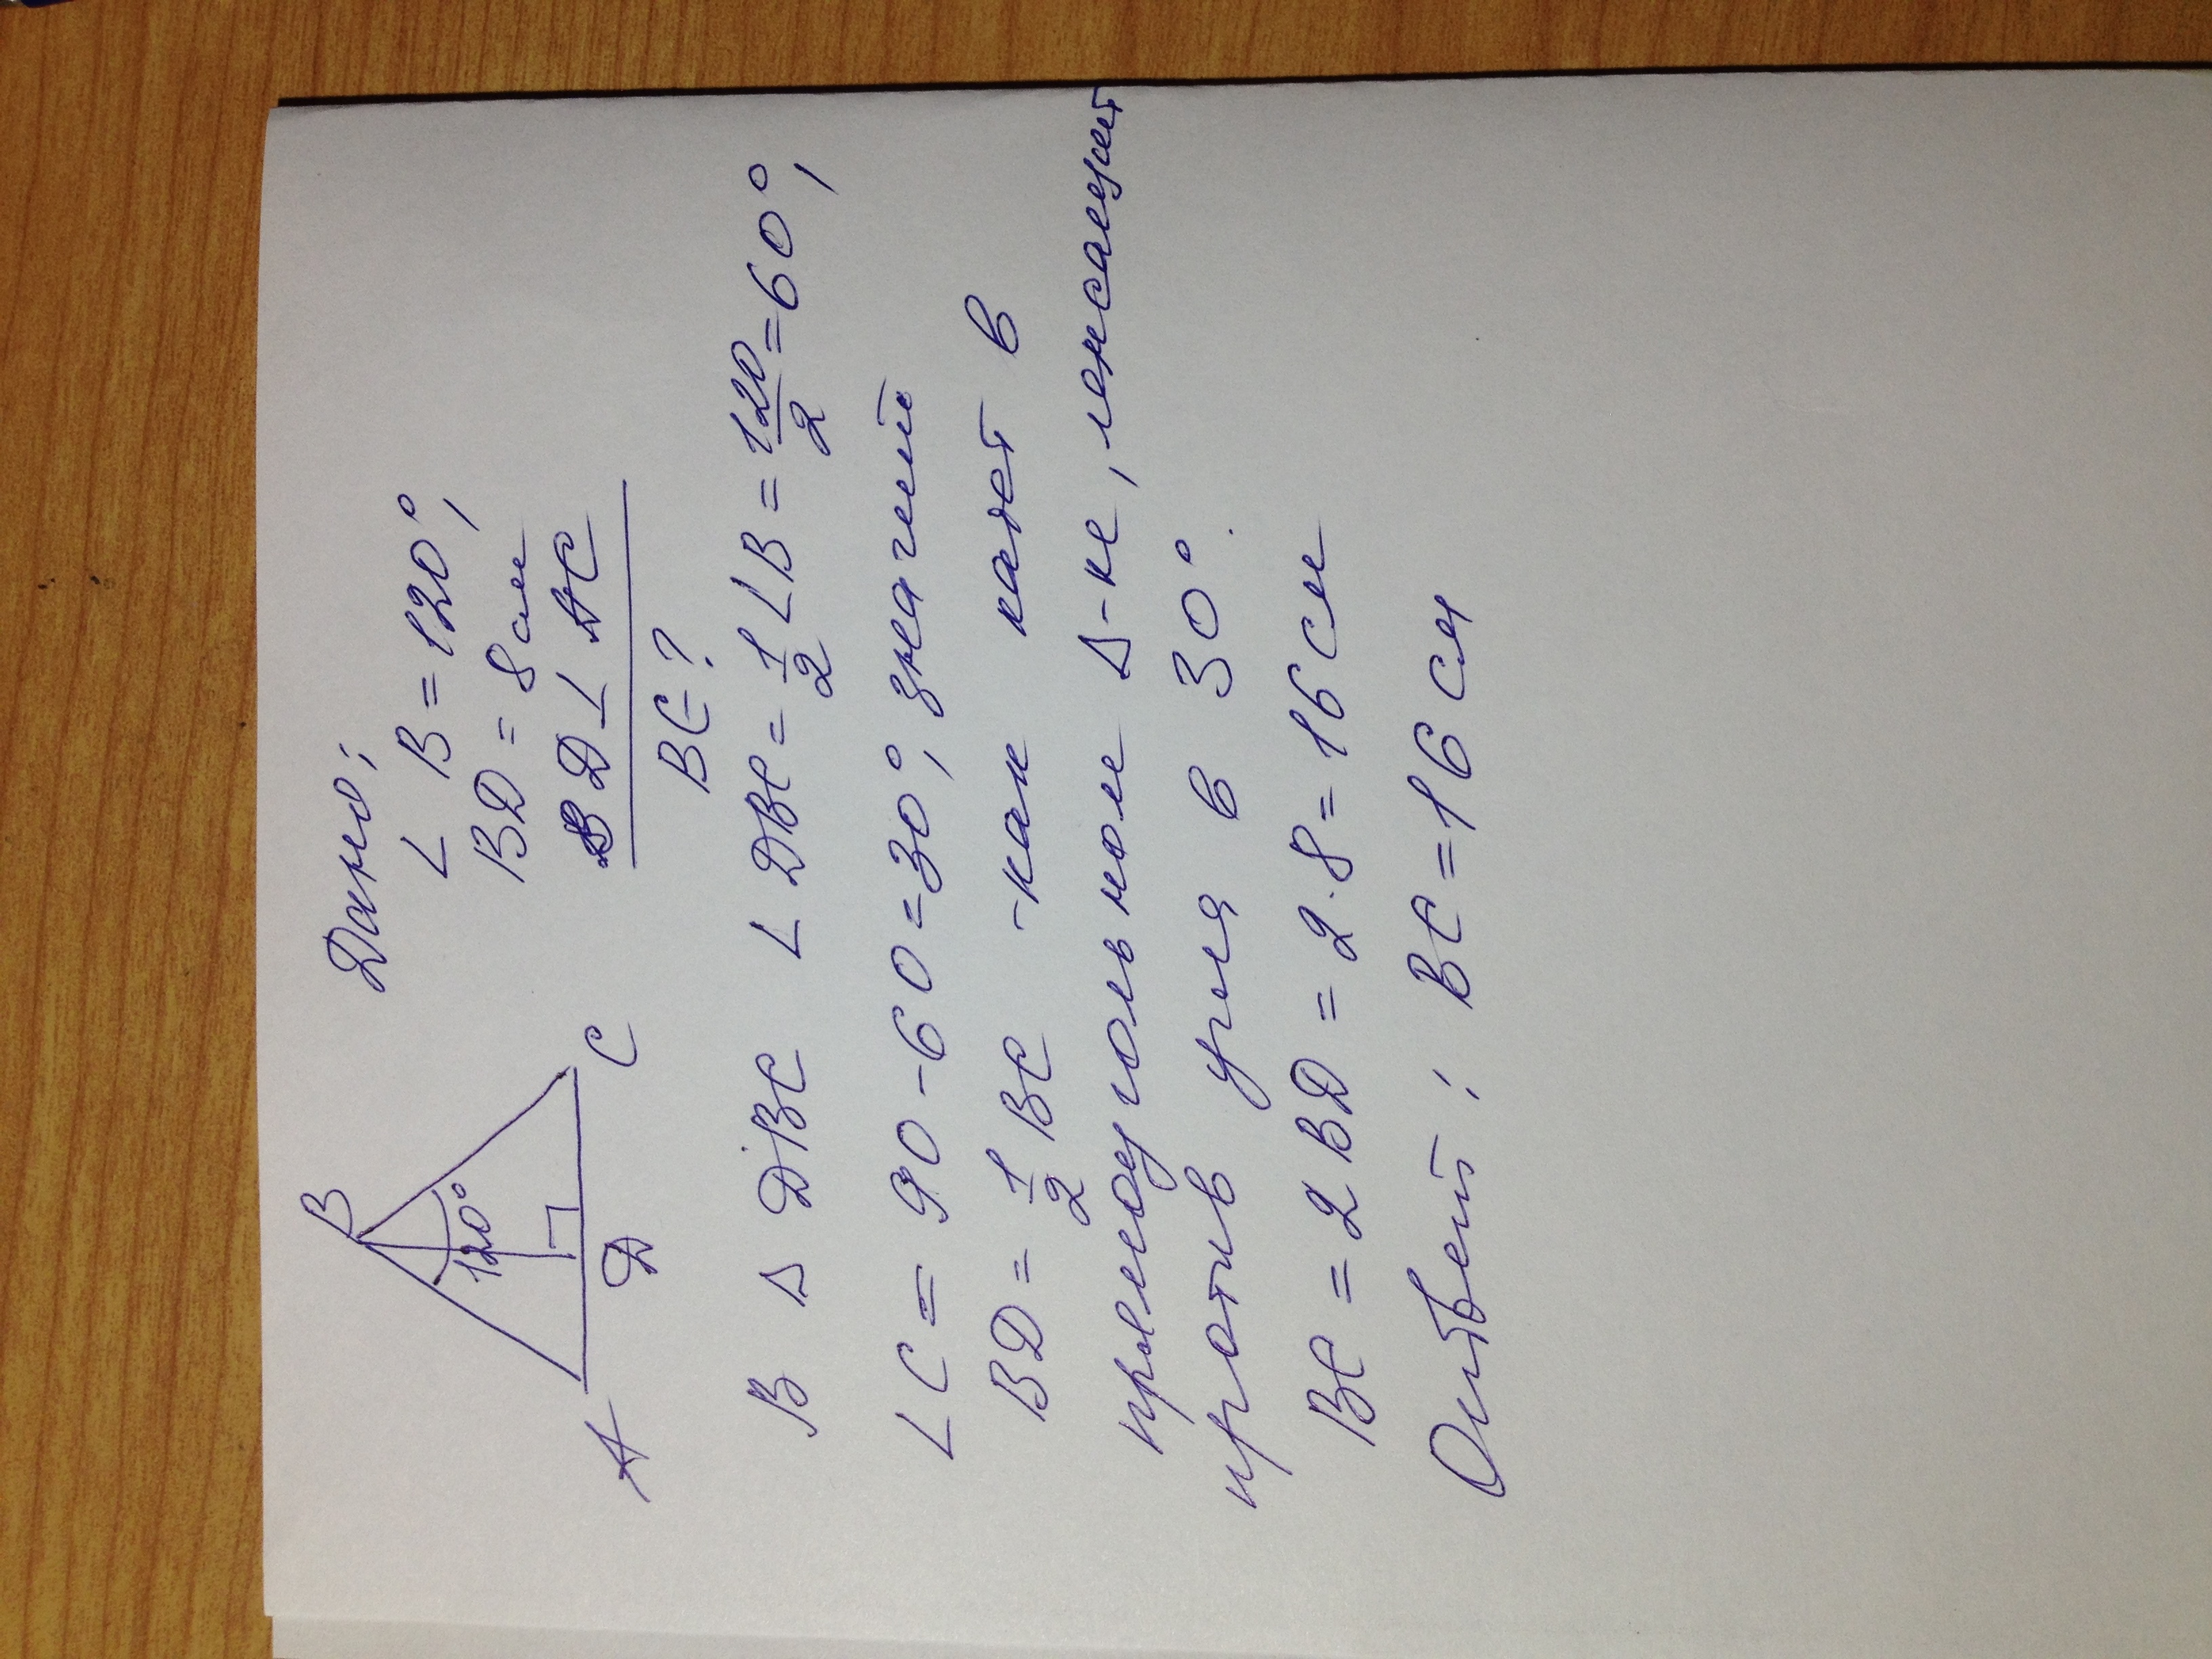 Дано:
B
∠ B = 120°,
120°
BD = 8 см
BD ⊥ AC
A
D
C
BC = ?
В Δ DBC ∠ DBC = 1/2 ∠B = 120/2 = 60°,
∠ C = 90 - 60 = 30°, значит
BD = 1/2 BC - как катет в
прямоугольном Δ-ке, лежащий
против угла в 30°.
BC = 2 BD = 2 · 8 = 16 см
Ответ: BC = 16 см